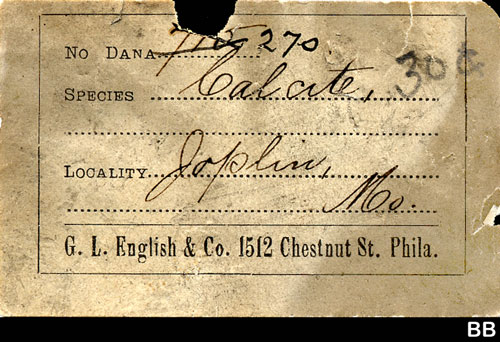 No Dana 715 270.
30¢
Species Calcite,
Locality Joplin,
Mo.
G. L. English & Co. 1512 Chestnut St. Phila.
BB